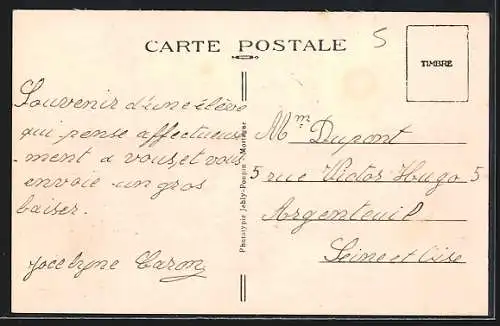 CARTE POSTALE
5
TIMBRE
Souvenir d'une élève
qui pense affectueuse
ment a vous, et vous
envoie un gros
baiser.
Jocelyne Caron
Phototypie Jehly-Poupin Mortagne
Mme Dupont
5 rue Victor Hugo 5
Argenteuil
Seine et Oise